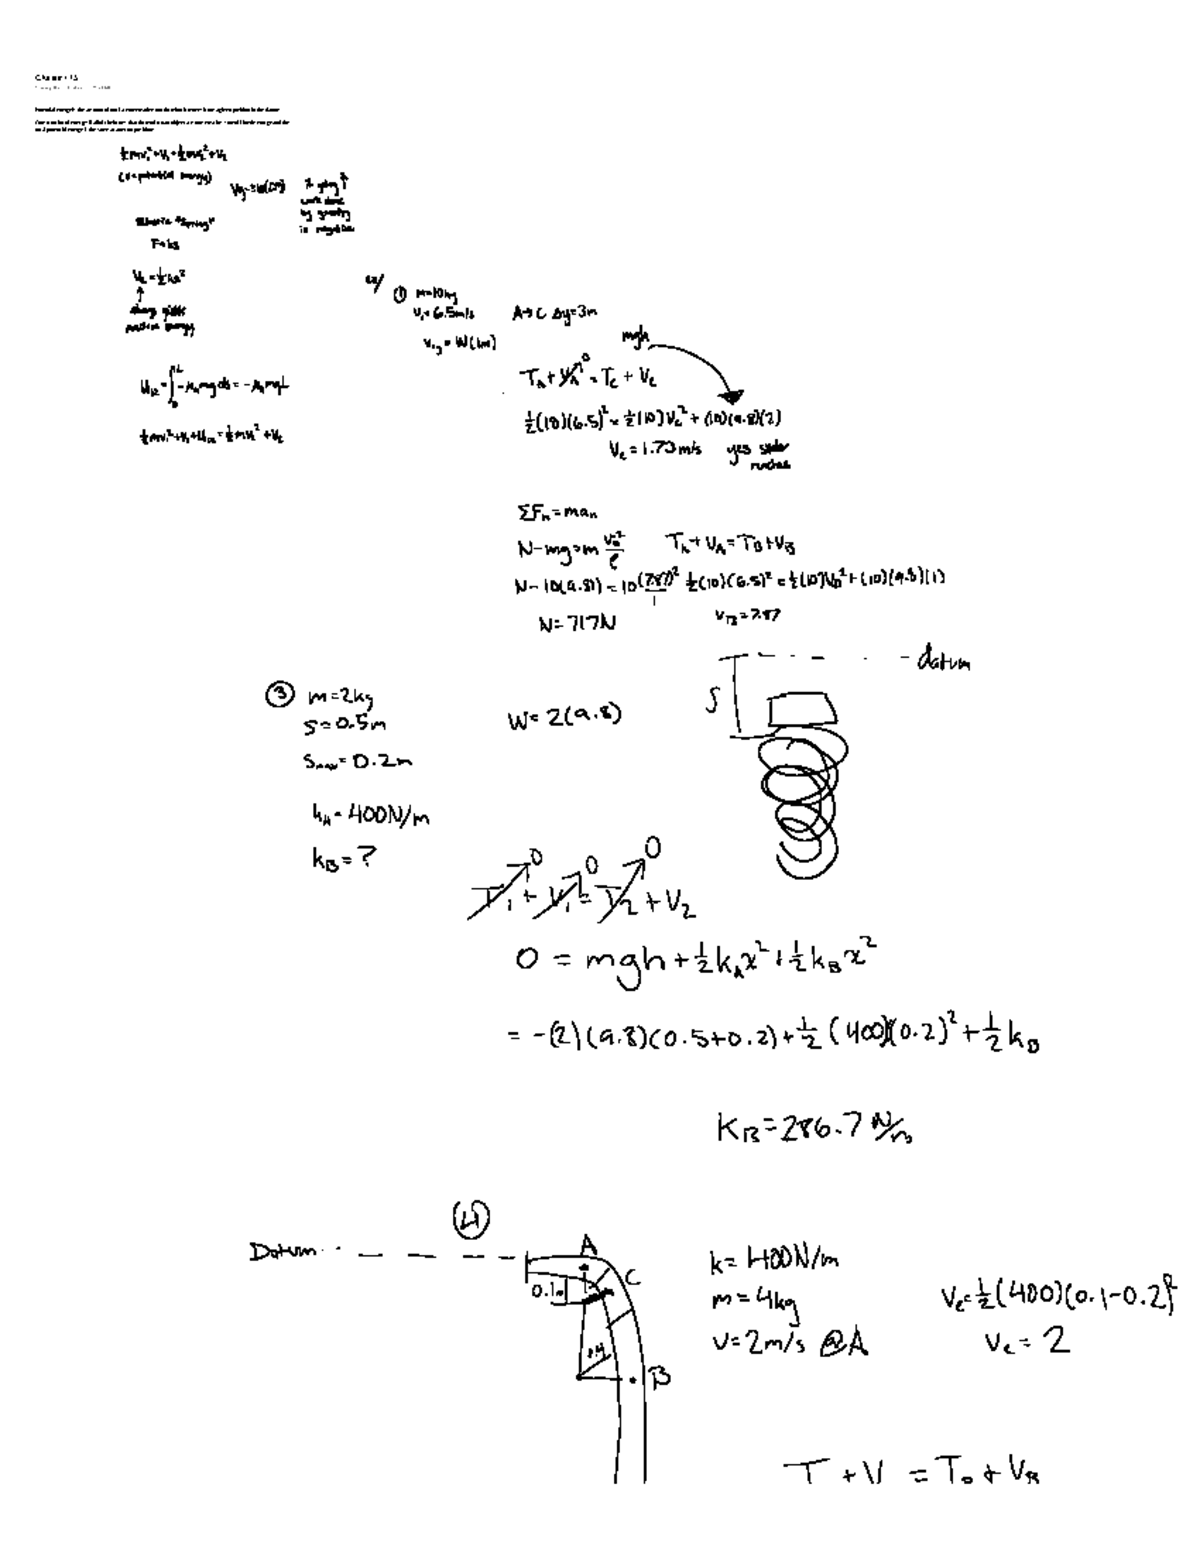 Chapter 15
½mv₁²+V₁=½mv₂²+V₂
(V=potential energy)
Vg=W(Δy)
if going ↑
work done
by gravity
is negative
Elastic "Spring"
F=ks
Ve=½ks²
always yields
positive energy
U₁₂=∫₀ᴸ-μₖmg ds=-μₖmgL
½mv₁²+V₁+U₁₂=½mv₂²+V₂
ex/
① m=10kg
v₁=6.5m/s
A→C Δy=3m
mgh
T_A+V_A⁰=T_C+V_C
½(10)(6.5)²=½(10)V_C²+(10)(9.8)(2)
V_C=1.73m/s
yes slider
reaches
ΣFₙ=maₙ
N-mg=m v_B²/ρ
T_A+V_A=T_B+V_B
N-10(9.8)=10(7.87)²/1
½(10)(6.5)²=½(10)V_B²+(10)(9.8)(1)
N=717N
V_B=7.87
datum
S
③ m=2kg
S=0.5m
W=2(9.8)
S_max=0.2m
k_A=400N/m
k_B=?
T₁⁰+V₁⁰=T₂⁰+V₂
0=mgh+½k_Ax²+½k_Bx²
=-(2)(9.8)(0.5+0.2)+½(400)(0.2)²+½k_B
K_B=286.7 N/m
④
Datum
A
C
0.1m
B
k=400N/m
m=4kg
v=2m/s @A
Ve=½(400)(0.1-0.2)²
Ve=2
T+V=T₀+V_B